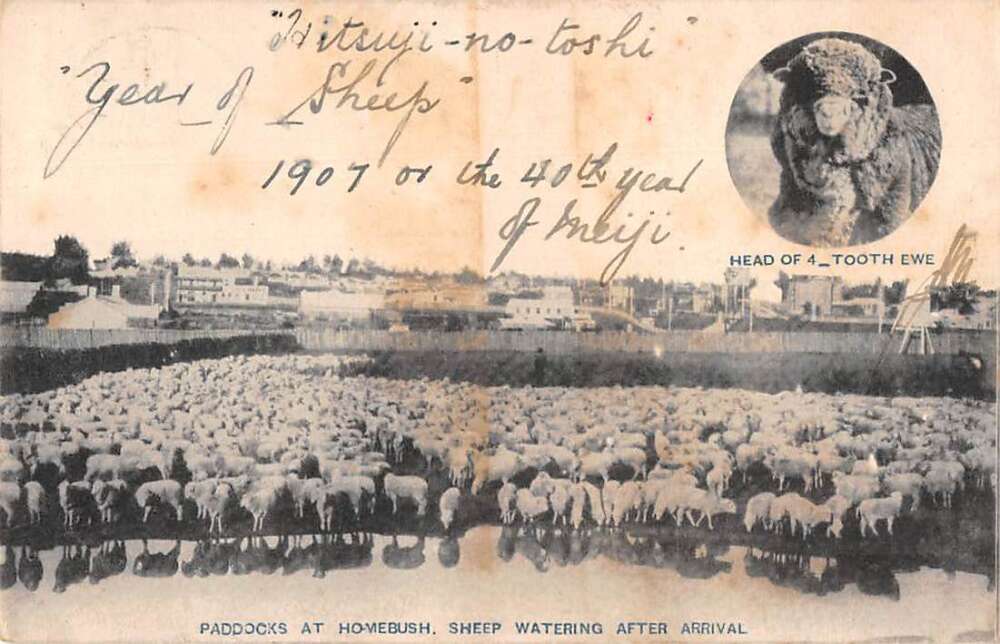 "Hitsuji-no-toshi"
"Year of Sheep"
1907 or the 40th year
of Meiji.
HEAD OF 4_TOOTH EWE
PADDOCKS AT HOMEBUSH. SHEEP WATERING AFTER ARRIVAL